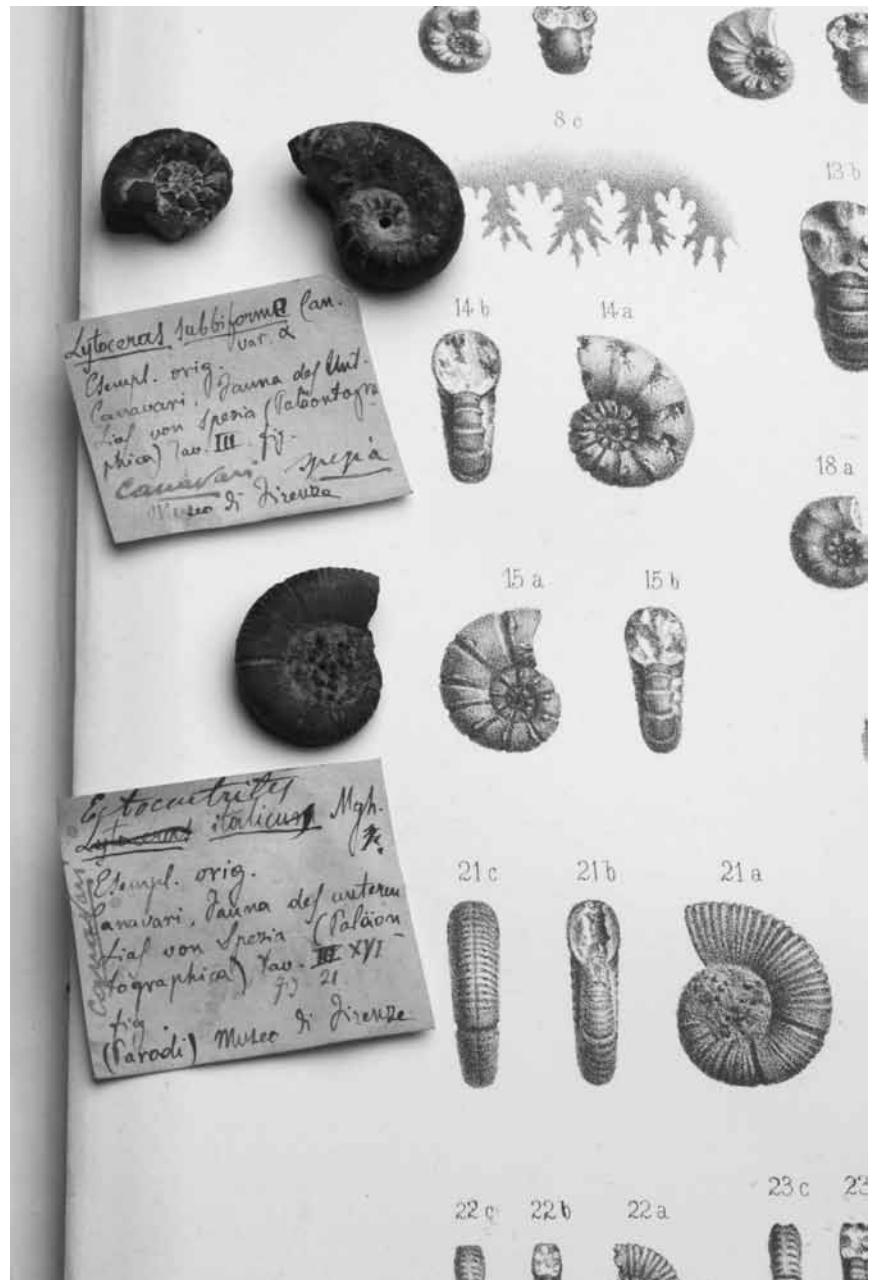 8 c
13 b
14 b
14 a
Lytoceras subbiforme Can.
var. α
Esempl. orig.
Canavari, Fauna des Unt.
Lias von Spezia (Paläontogra
phica) Tav. III fig.
Canavari Spezia
Museo di Firenze
18 a
15 a
15 b
Ectocentrites
Lytoceras italicum Mgh.
Canavari
Esempl. orig.
Canavari, Fauna des unteren
Lias von Spezia (Paläon
tographica) Tav. III XVI
fig. 21
(Parodi) Museo di Firenze
21 c
21 b
21 a
22 c
22 b
22 a
23 c
23